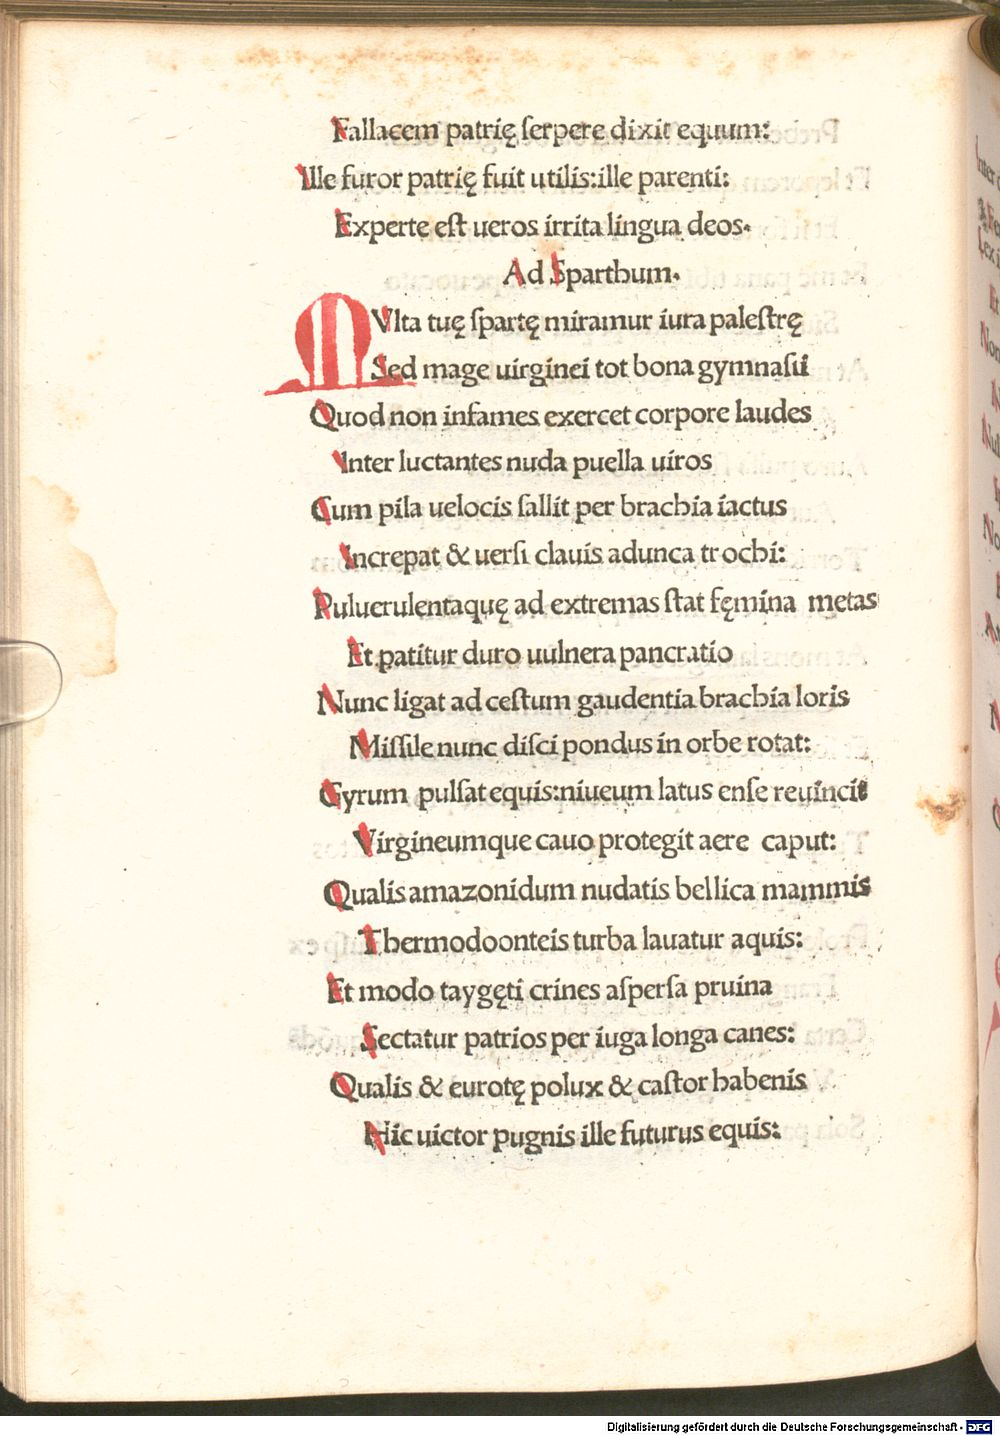 Fallacem patrię ſerpere dixit equum:
Ille furor patrię fuit utilis:ille parenti:
Experte eſt ueros irrita lingua deos.
Ad Sparthum.
MVlta tuę ſpartę miramur iura paleſtrę
Sed mage uirginei tot bona gymnaſii
Quod non infames exercet corpore laudes
Inter luctantes nuda puella uiros
Cum pila uelocis fallit per brachia iactus
Increpat & uerſi clauis adunca trochi:
Puluerulentaquę ad extremas ſtat fęmina metas
Et patitur duro uulnera pancratio
Nunc ligat ad ceſtum gaudentia brachia loris
Miſſile nunc diſci pondus in orbe rotat:
Gyrum pulſat equis:niueum latus enſe reuincit
Virgineumque cauo protegit aere caput:
Qualis amazonidum nudatis bellica mammis
Thermodoonteis turba lauatur aquis:
Et modo taygęti crines aſperſa pruina
Sectatur patrios per iuga longa canes:
Qualis & eurotę polux & caſtor habenis
Hic uictor pugnis ille futurus equis:
Digitalisierung gefördert durch die Deutsche Forschungsgemeinschaft - DFG